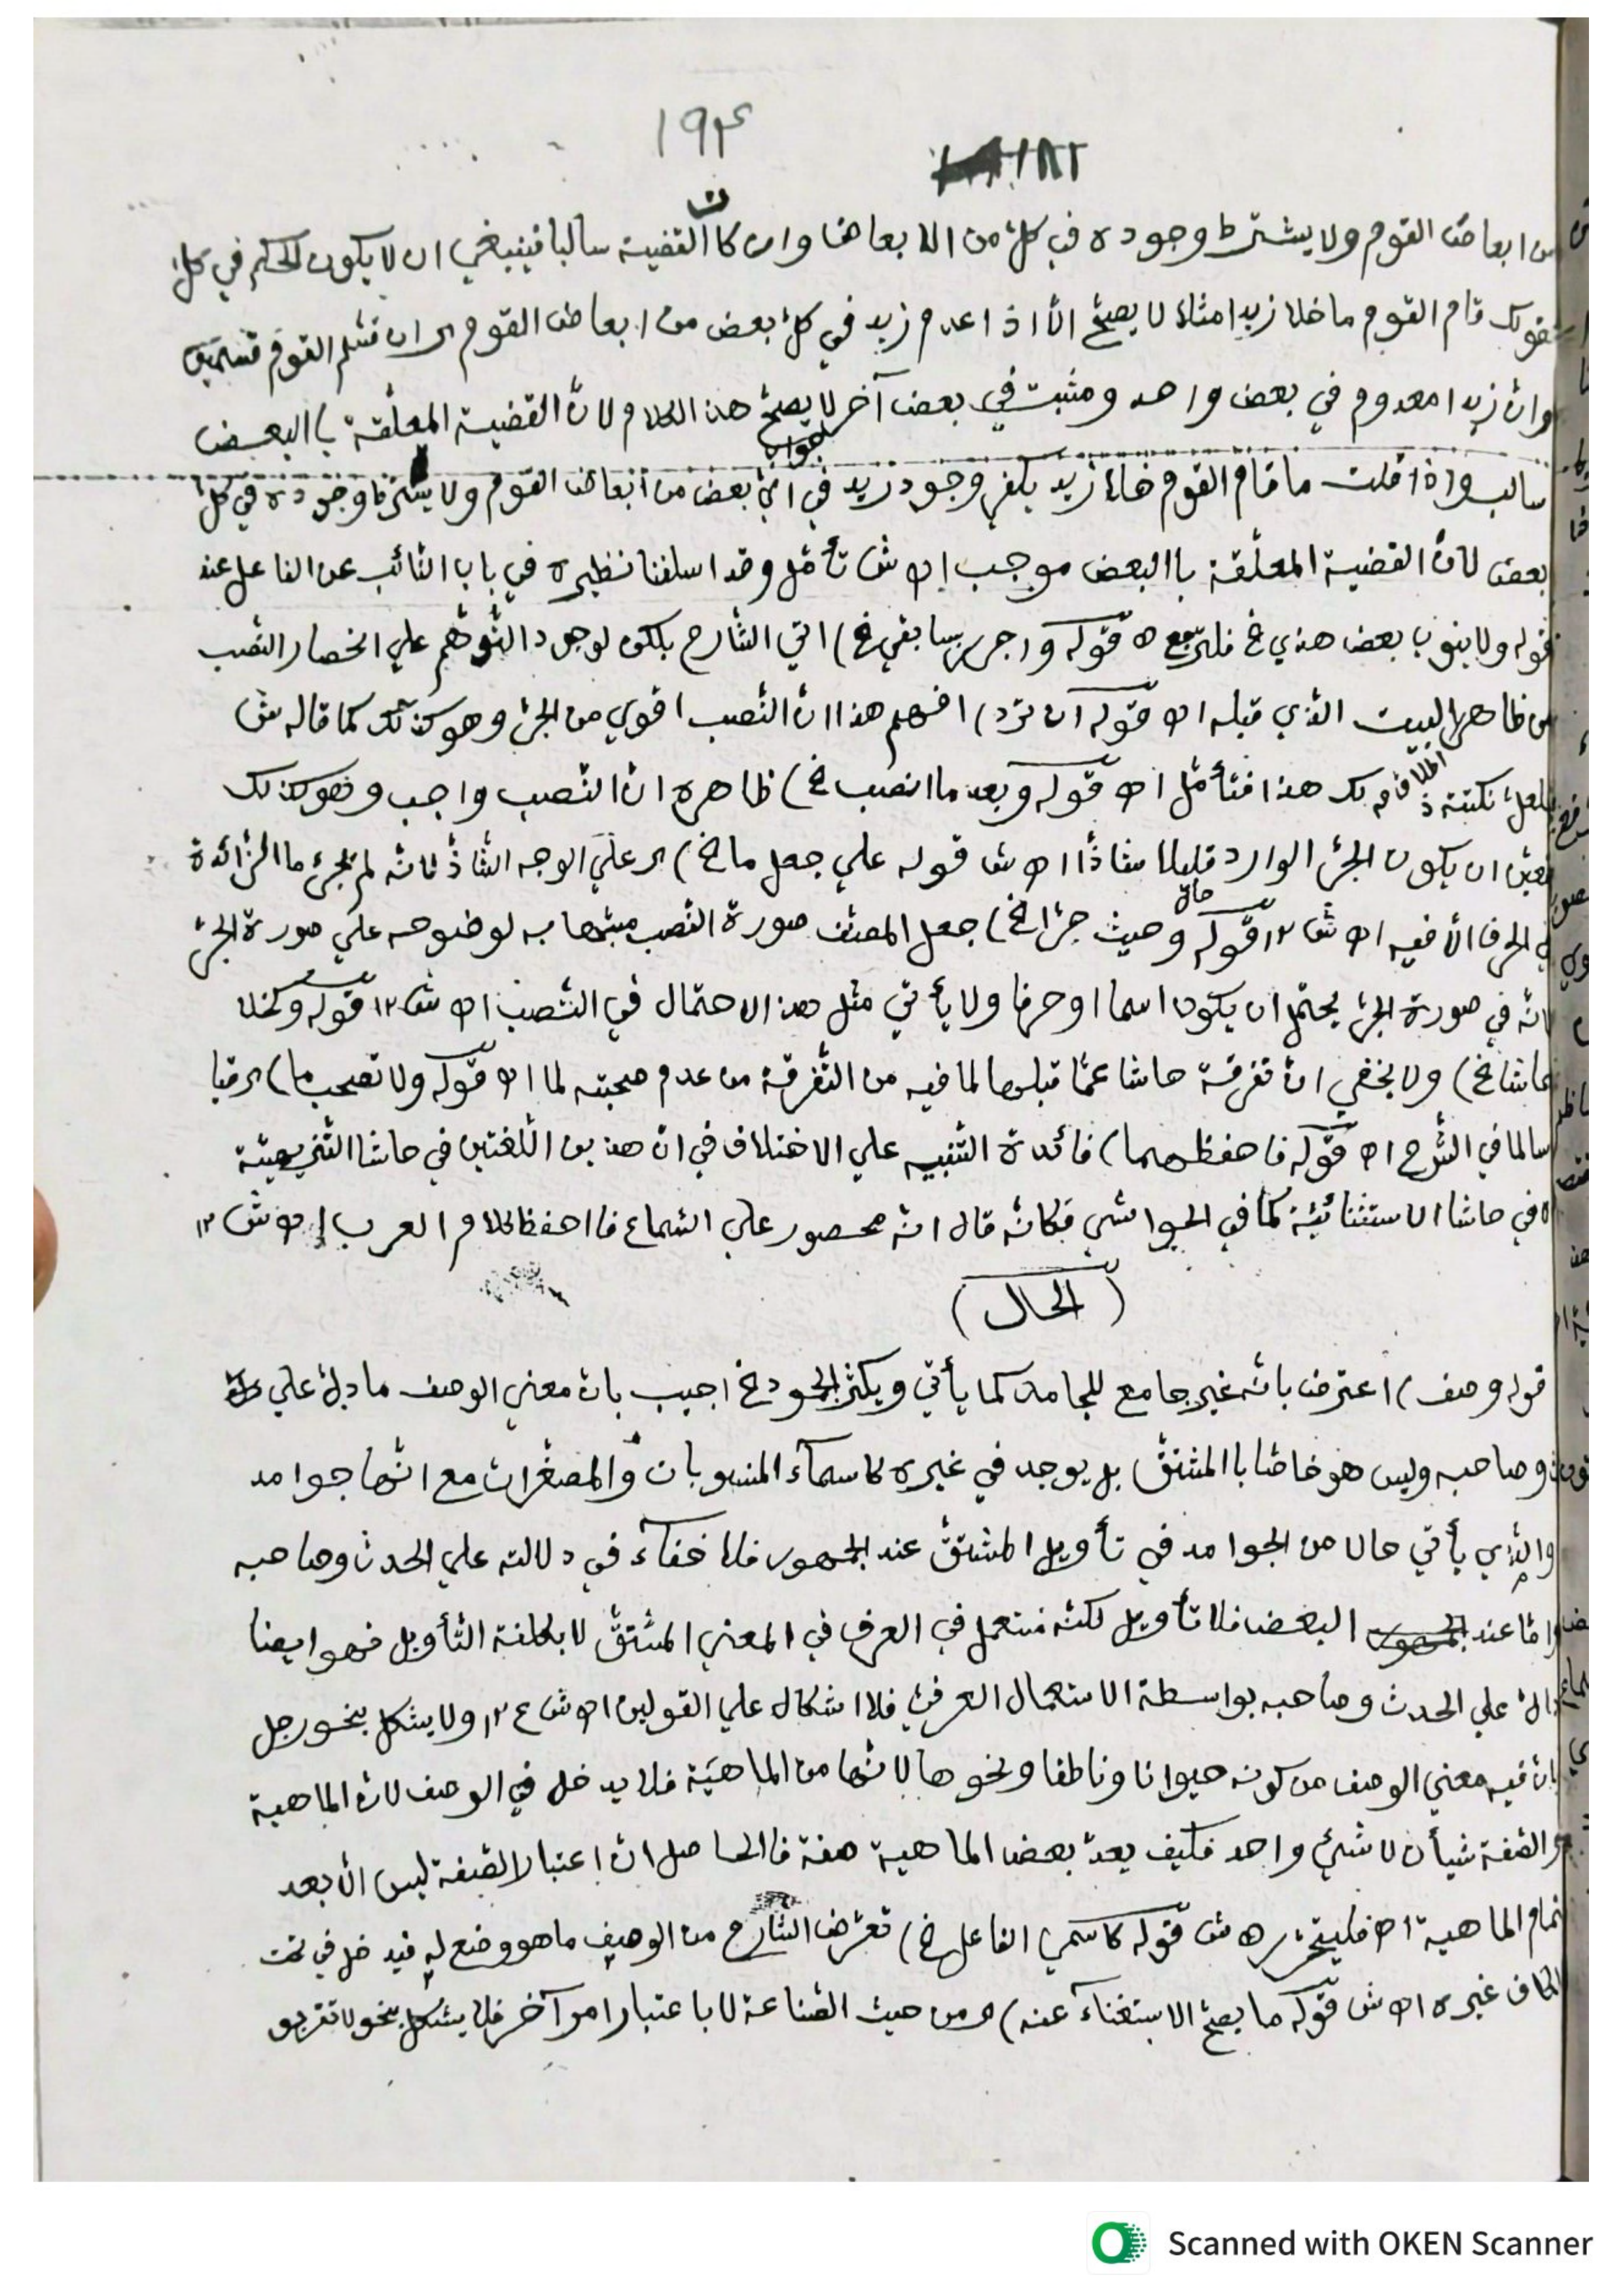 ١٩٤
١٨٢
من ابعاض القوم ولا يشترط وجوده في كلّ من الابعاض وان كانت القضية سالبا فينبغي ان لا يكون الحكم في كل
قام القوم ما خلا زيدا مثلا لا يصحّ الّا اذا عدم زيد في كلّ بعض من ابعاض القوم ان قسّم القوم قسمين
وانّ زيدا معدوم في بعض واحد ومثبت في بعض آخر لا يصحّ هذا الكلام لانّ القضية المعلّقة باالبعض
سالب واذا قلت ما قام القوم خلا زيد يكفي وجود زيد في ايّ بعض من ابعاض القوم ولا يشترط وجوده في كلّ
بعض لانّ القضية المعلّقة باالبعض موجب اه ش تأمّل وقد اسلفنا نظيره في باب النّائب عن الفاعل عند
قوله ولا ينوب بعض هذي خ فليرجع ه قوله واجرر بسابقي خ) اتي الشّارح بلكن لوجود التّوهّم علي انحصار النّصب
من ظاهر البيت الّذي قبله اه قوله ان ترد) افهم هذا انّ النّصب اقوي من الجرّ وهو كذلك كما قاله ش
ولعلّ نكتة هذا فتأمّل اه قوله وبعد ما انصب خ) ظاهره انّ النّصب واجب وهو كذلك
ان يكون الجرّ الوارد قليلا شاذّا اه ش قوله علي جعل ما خ) علي الوجه الشّاذّ لانّه لم تجئ ما الزّائدة
الحرف الّا فيه اه ش ١٢ قوله وحيث جرّا خ) جعل المصنّف صورة النّصب مشبّها به لوضوحه علي صورة الجرّ
لانّه في صورة الجرّ يحتمل ان يكون اسما او حرفا ولا يأتي مثل هذا الاحتمال في النّصب اه ش ١٢ قوله وكخلا
حاشا خ) ولا يخفي انّ تفرقة حاشا عمّا قبلها لما فيه من التّفرقة من عدم صحبته لما اه قوله ولا تصحب ما)
سالما في الشّرح اه قوله فاحفظهما) فائدة التّنبيه علي الاختلاف في انّ هذين اللّغتين في حاشا التّنزيهيّة
في حاشا الاستثنائيّة كما في الحواشي فكانّه قال انّه محصور علي السّماع فااحفظ كلام العرب اه ش ١٢
(الحال)
قوله وصف) اعترض بانّه غير جامع للجامد كما يأتي ويكثر الجمود خ اجيب بانّ معني الوصف ما دلّ علي
وصاحبه وليس هو خاصّا باالمشتقّ بل يوجد في غيره كاسمآء المنسوبات والمصغّرات مع انّها جوامد
والّذي يأتي حالا من الجوامد في تأويل المشتقّ عند الجمهور فلا خفآء في دلالته علي الحدث وصاحبه
وامّا عند البعض فلا تأويل لكنّه مستعمل في العرف في المعني المشتقّ لا بكلفة التّأويل فهو ايضا
دالّ علي الحدث وصاحبه بواسطة الاستعمال العرفيّ فلا اشكال علي القولين اه ش ع ١٢ ولا يشكل بنحو رجل
بانّ فيه معني الوصف من كونه حيوانا وناطقا ونحوها لانّها من الماهيّة فلا يدخل في الوصف لانّ الماهية
والصّفة شيأن لا شئ واحد فكيف يعدّ بعض الماهية صفة فاالحاصل انّ اعتبار الصّفة ليس الّا بعد
تمام الماهية اه فليتحرّر ه ش قوله كاسمي الفاعل خ) تعرّض الشّارح من الوصف ما هو وضع له فيدخل في تحت
الكاف غيره اه ش قوله ما يصحّ الاستغنآء عنه) من حيث الصّناعة لا باعتبار امر آخر فلا يشكل بنحو لا تقربو
Scanned with OKEN Scanner